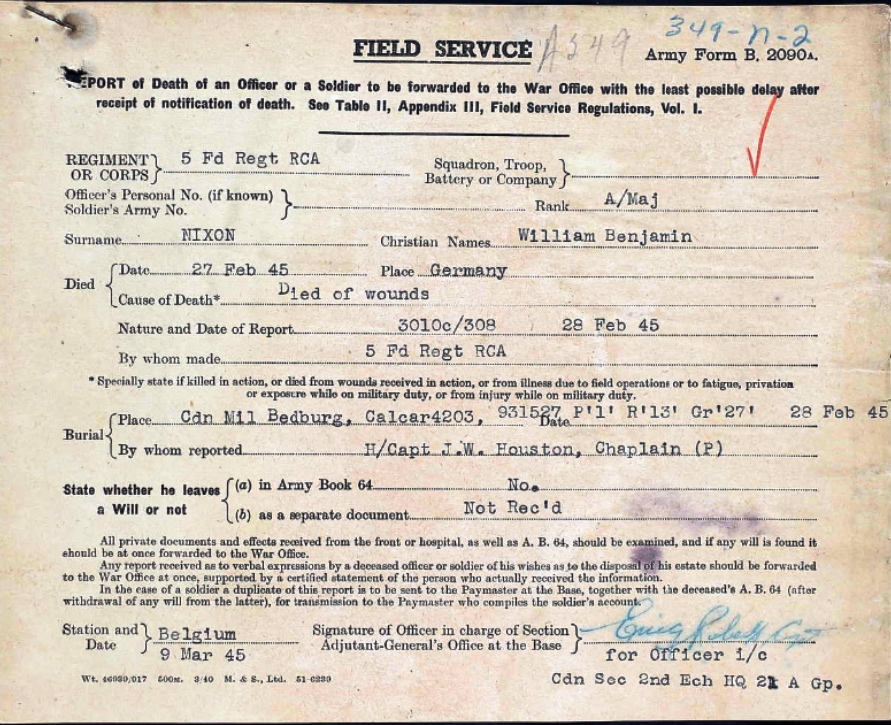 FIELD SERVICE A349 349-N-2
Army Form B. 2090A.
EPORT of Death of an Officer or a Soldier to be forwarded to the War Office with the least possible delay after
receipt of notification of death. See Table II, Appendix III, Field Service Regulations, Vol. I.
REGIMENT OR CORPS 5 Fd Regt RCA Squadron, Troop, Battery or Company
Officer's Personal No. (if known)
Soldier's Army No. Rank A/Maj
Surname NIXON Christian Names William Benjamin
Died Date 27 Feb 45 Place Germany
Cause of Death* Died of wounds
Nature and Date of Report 3010c/308 28 Feb 45
By whom made 5 Fd Regt RCA
* Specially state if killed in action, or died from wounds received in action, or from illness due to field operations or to fatigue, privation
or exposure while on military duty, or from injury while on military duty.
Burial Place Cdn Mil Bedburg, Calcar4203, 931527 Date P'1' R'13' Gr'27' 28 Feb 45
By whom reported H/Capt J.W. Houston, Chaplain (P)
State whether he leaves a Will or not (a) in Army Book 64 No.
(b) as a separate document Not Rec'd
All private documents and effects received from the front or hospital, as well as A. B. 64, should be examined, and if any will is found it
should be at once forwarded to the War Office.
Any report received as to verbal expressions by a deceased officer or soldier of his wishes as to the disposal of his estate should be forwarded
to the War Office at once, supported by a certified statement of the person who actually received the information.
In the case of a soldier a duplicate of this report is to be sent to the Paymaster at the Base, together with the deceased's A. B. 64 (after
withdrawal of any will from the latter), for transmission to the Paymaster who compiles the soldier's account.
Station and Date Belgium Signature of Officer in charge of Section
9 Mar 45 Adjutant-General's Office at the Base
for Officer i/c
Wt. 46930/017 500m. 3/40 M. & S., Ltd. 51-6239 Cdn Sec 2nd Ech HQ 21 A Gp.